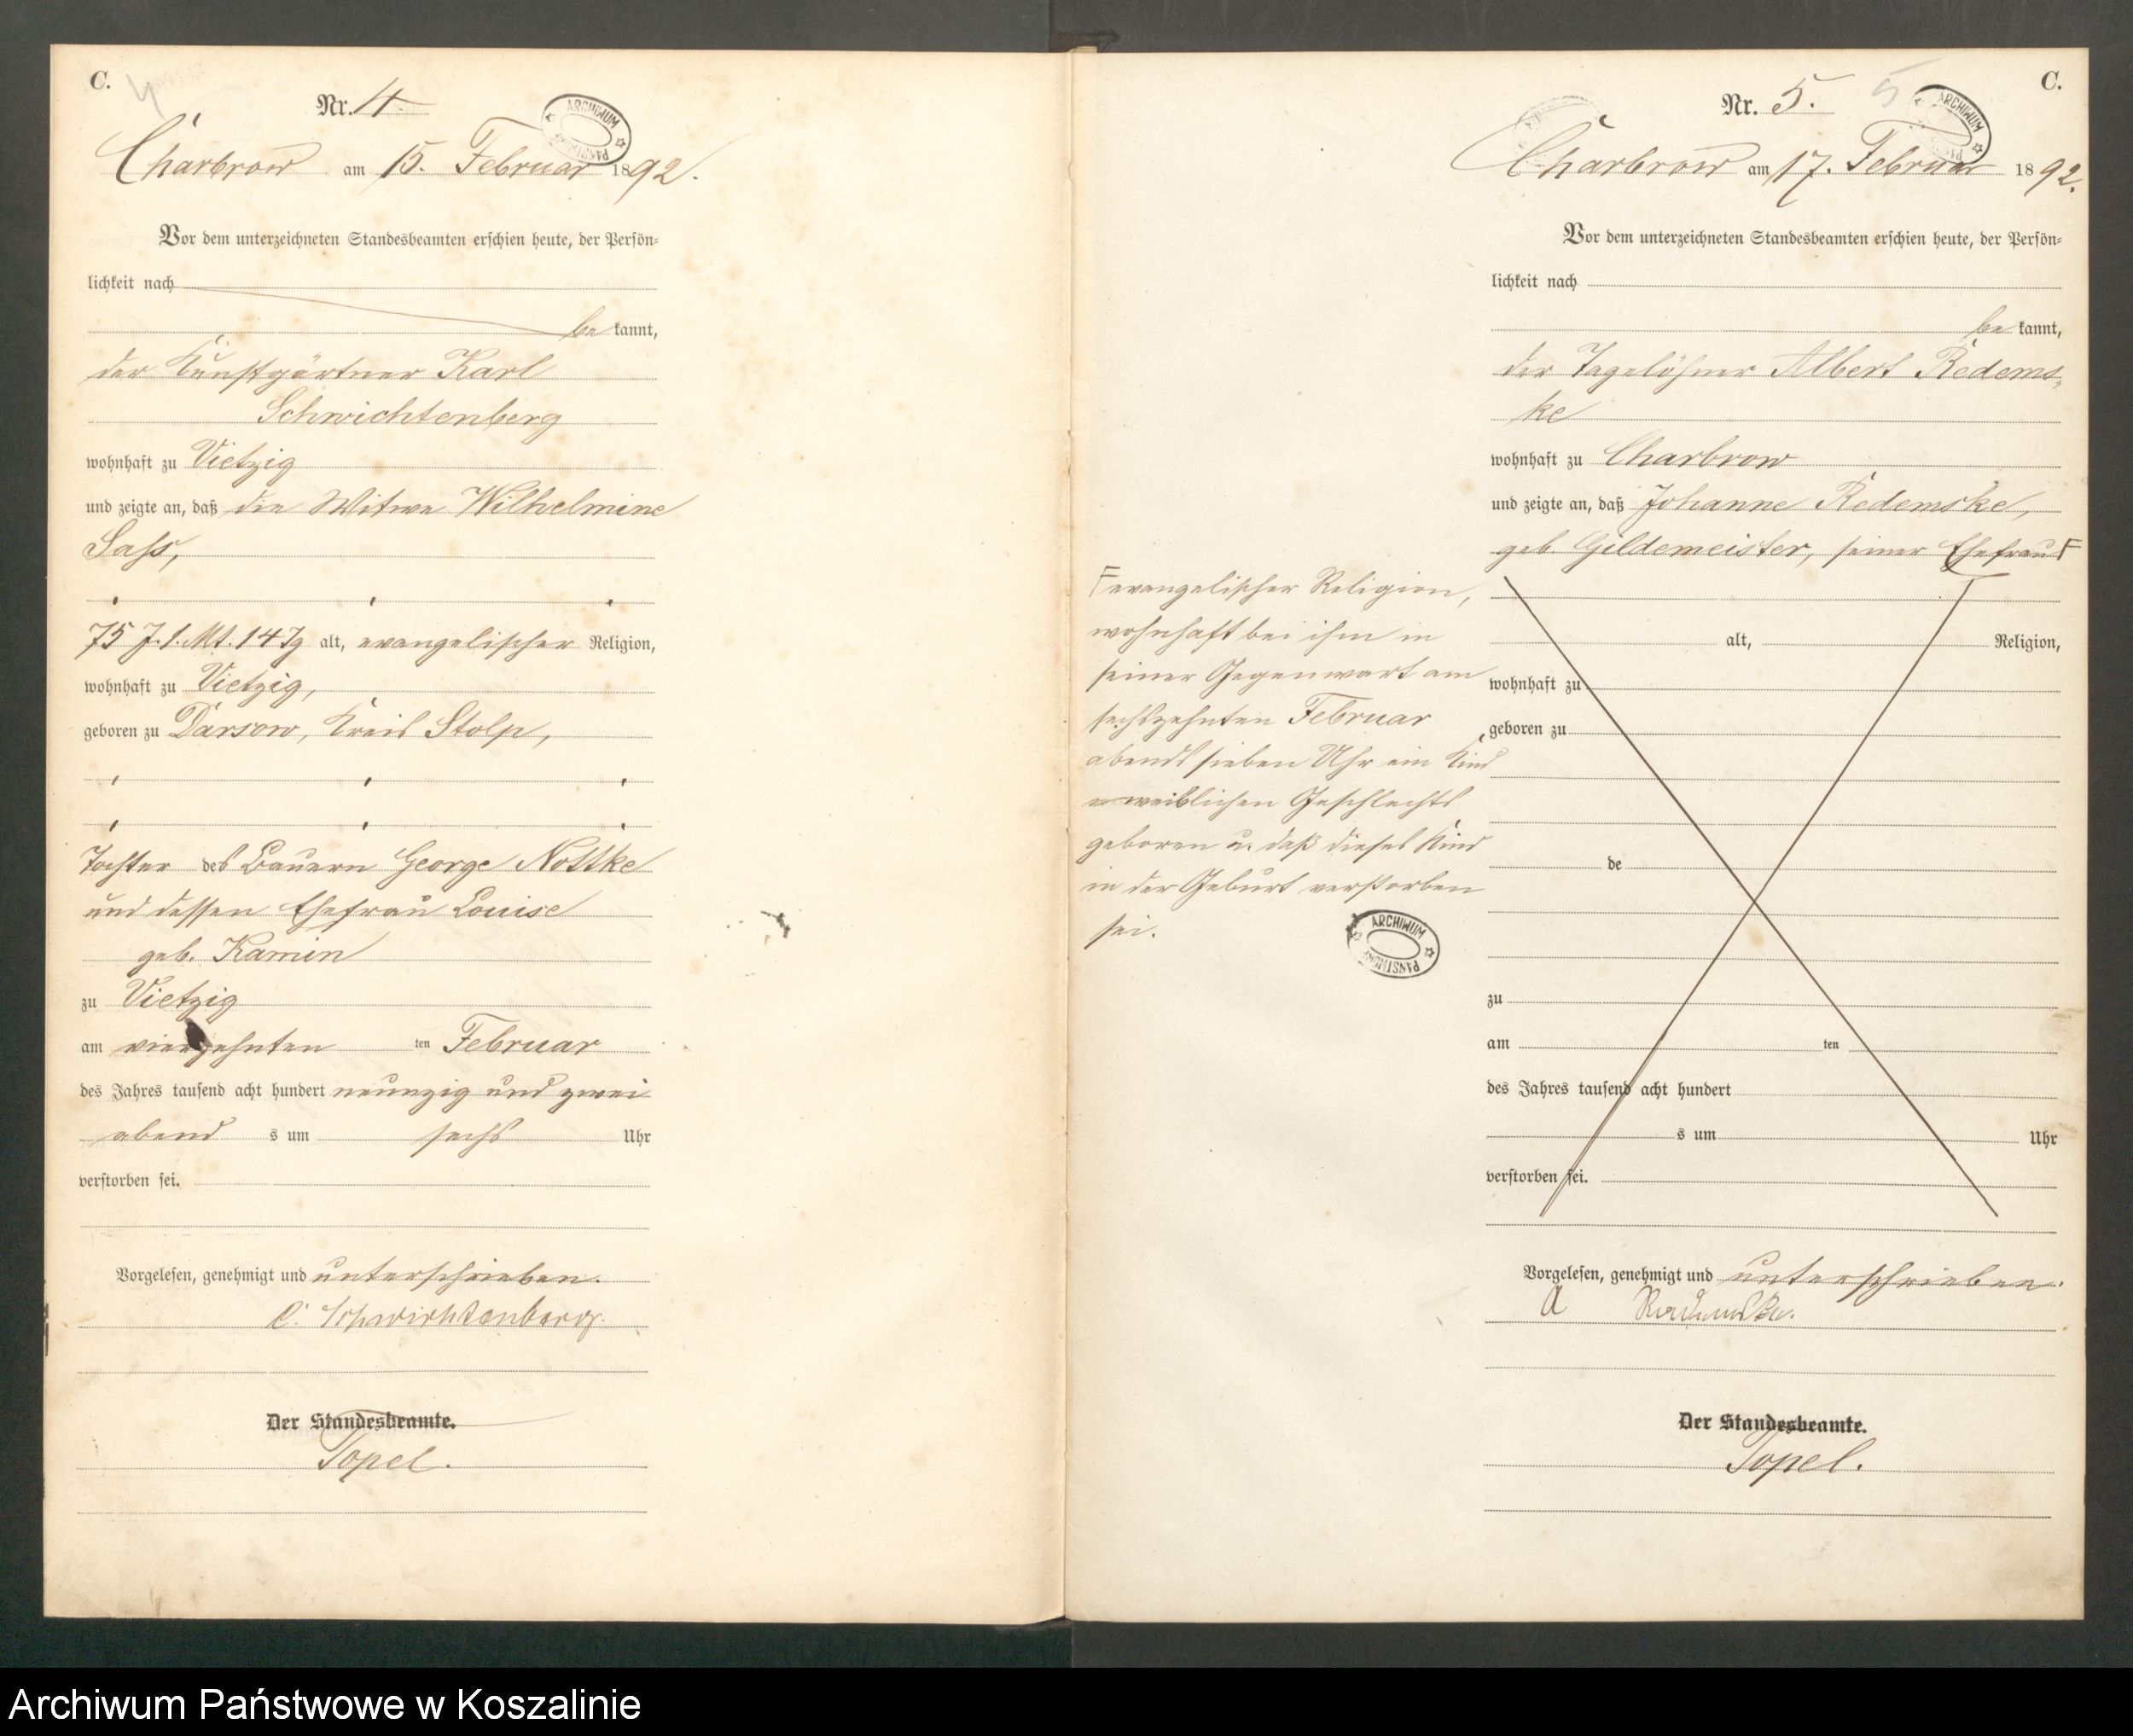 C.
4
Nr. 4.
ARCHIWUM
Charbrow am 15. Februar 1892.
Vor dem unterzeichneten Standesbeamten erschien heute, der Persön-
lichkeit nach
be kannt,
der Kunstgärtner Karl
Schwichtenberg
wohnhaft zu Vietzig
und zeigte an, daß die Witwe Wilhelmine
Sass,
75 J. 1. Mt. 14 Tg alt, evangelischer Religion,
wohnhaft zu Vietzig,
geboren zu Darsow, Kreis Stolp,
Tochter des Bauern George Nottke
und dessen Ehefrau Louise
geb. Kamin
zu Vietzig
am vierzehnten ten Februar
des Jahres tausend acht hundert neunzig und zwei
abend s um sechs Uhr
verstorben sei.
Vorgelesen, genehmigt und unterschrieben.
C. Schwichtenberg.
Der Standesbeamte.
Topel.
C.
5
Nr. 5.
ARCHIWUM
Charbrow am 17. Februar 1892.
Vor dem unterzeichneten Standesbeamten erschien heute, der Persön-
lichkeit nach
be kannt,
der Tagelöhner Albert Redems-
ke
wohnhaft zu Charbrow
und zeigte an, daß Johanne Redemske,
geb Gildemeister, seiner Ehefrau F
F evangelischer Religion,
wohnhaft bei ihm in
seiner Gegenwart am
sechszehnten Februar
abends sieben Uhr ein Kind
weiblichen Geschlechts
geboren u. daß dieses Kind
in der Geburt verstorben
sei.
ARCHIWUM PAŃSTWOWE
alt, Religion,
wohnhaft zu
geboren zu
de
zu
am ten
des Jahres tausend acht hundert
s um Uhr
verstorben sei.
Vorgelesen, genehmigt und unterschrieben.
A Redemske.
Der Standesbeamte.
Topel.
Archiwum Państwowe w Koszalinie